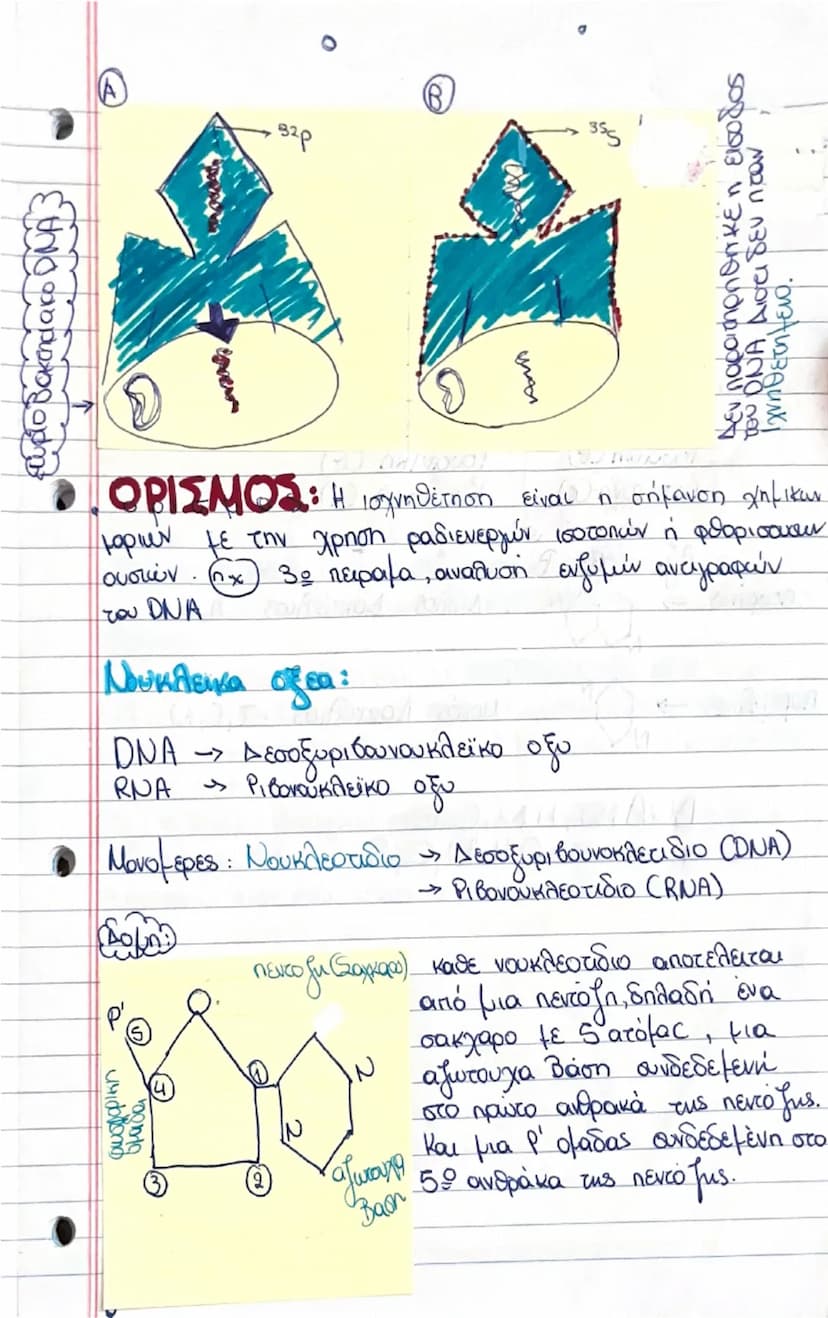 Α
Β
32p
35s
κυριο βακτηριακο DNA
Δεν παρατηρηθηκε η εισοδος
του DNA διοτι δεν ηταν
ιχνηθετητειο.
ΟΡΙΣΜΟΣ: Η ισχνηθέτηση είναι η σήμανση χημικων
μοριων με την χρηση ραδιενεργών ισοτοπών ή φθοριζουσων
ουσιών. πχ 3ο πειραμα, αναλυση ενζυμών αντιγραφών
του DNA
Νουκλεικα οξεα:
DNA → Δεσοξυριβουνουκλεϊκο οξυ
RNA → Ριβονουκλεϊκο οξυ
Μονομερες: Νουκλεοτιδιο → Δεσοξυριβουνοκλετιδιο (DNA)
→ Ριβονουκλεοτιδιο (RNA)
Δομη:
πεντοζη (Σαγχαρο)
P'
5
4
1
3
2
N
N
φωσφορικη
ομαδα
αζωτουχα
βαση
καθε νουκλεοτιδιο αποτελειται
από μια πεντόζη, δηλαδή ένα
σακχαρο με 5 ατόμα C, μια
αζωτουχα βάση συνδεδεμενη
στο πρωτο ανθρακά της πεντόζης.
Και μια P' ομαδας συνδεδεμένη στο
5ο ανθράκα της πεντόζης.